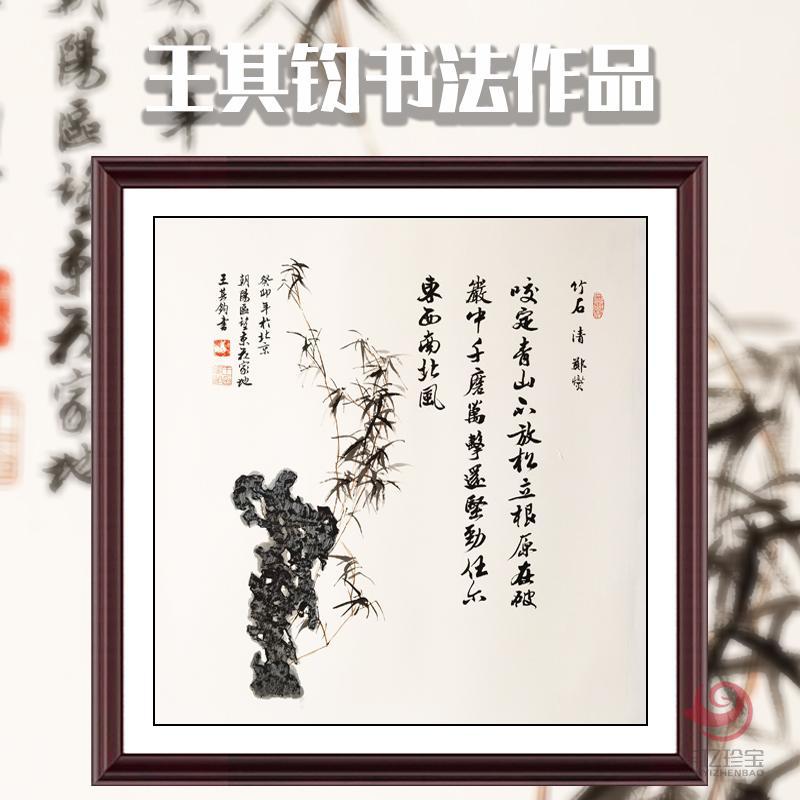 王其钧书法作品
竹石 清 鄭燮
咬定青山不放松立根原在破
巖中千磨萬擊還堅勁任尔
東西南北風
癸卯年於北京
朝陽區望京花家地
王其鈞書
卯年
朝陽區望京花家地
亿珍宝
YIZHENBAO